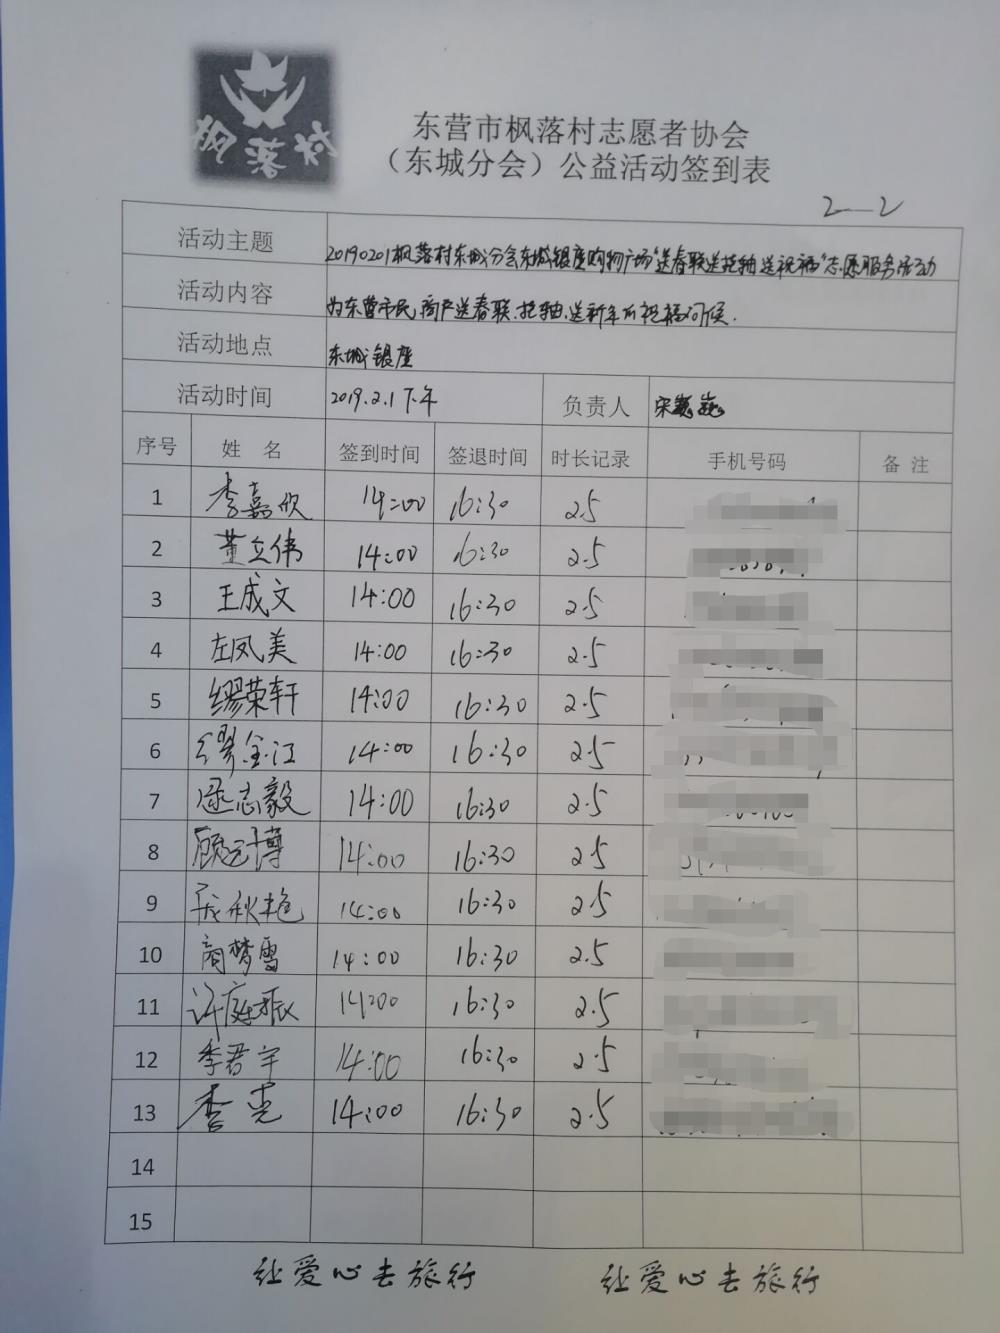 枫落村
东营市枫落村志愿者协会
（东城分会）公益活动签到表
2—2
活动主题 20190201枫落村东城分会东城银座购物广场"送春联送挂轴送祝福"志愿服务活动
活动内容 为东营市民,商户送春联.挂轴.送新年的祝福问候.
活动地点 东城银座
活动时间 2019.2.1下午 负责人 宋
序号 姓 名 签到时间 签退时间 时长记录 手机号码 备 注
1 李嘉欣 14:00 16:30 2.5
2 董立伟 14:00 16:30 2.5
3 王成文 14:00 16:30 2.5
4 左凤美 14:00 16:30 2.5
5 缪荣轩 14:00 16:30 2.5
6 缪金江 14:00 16:30 2.5
7 逯志毅 14:00 16:30 2.5
8 顾远博 14:00 16:30 2.5
9 秋艳 14:00 16:30 2.5
10 商梦雪 14:00 16:30 2.5
11 许庭振 14:00 16:30 2.5
12 季君宇 14:00 16:30 2.5
13 李亮 14:00 16:30 2.5
14
15
让爱心去旅行 让爱心去旅行